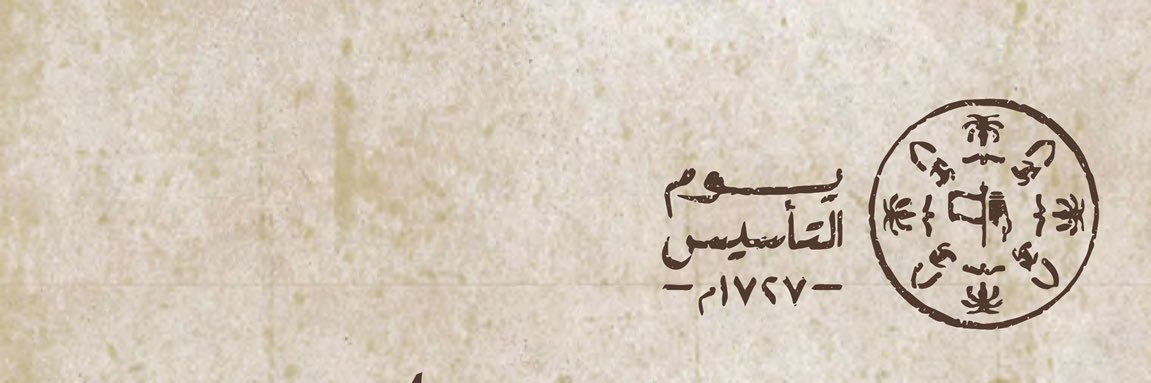 يوم
التأسيس
-١٧٢٧م-